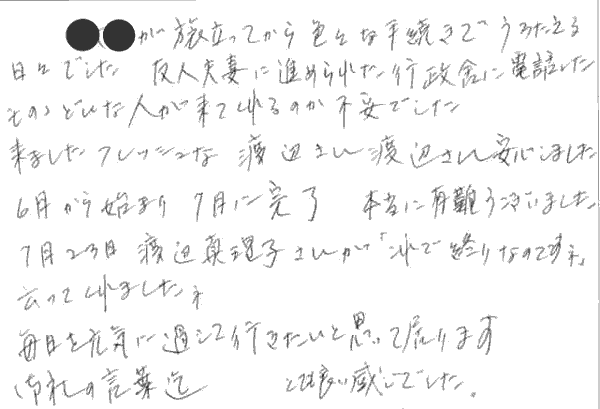 が旅立ってから色々な手続きでうろたえる
日々でした 友人夫妻に進められた行政会に電話した
ものゝどんな人が来てくれるのか不安でした
来ました フレッシュな 渡辺さん 渡辺さん 安心しました
6月から始まり 7月に完了 本当に有難うございました
7月23日 渡辺真理子さんが「これで終りなのですネ」
云ってくれましたネ
毎日を元気に過して行きたいと思って居ります
御礼の言葉迄 とても良い感じでした。